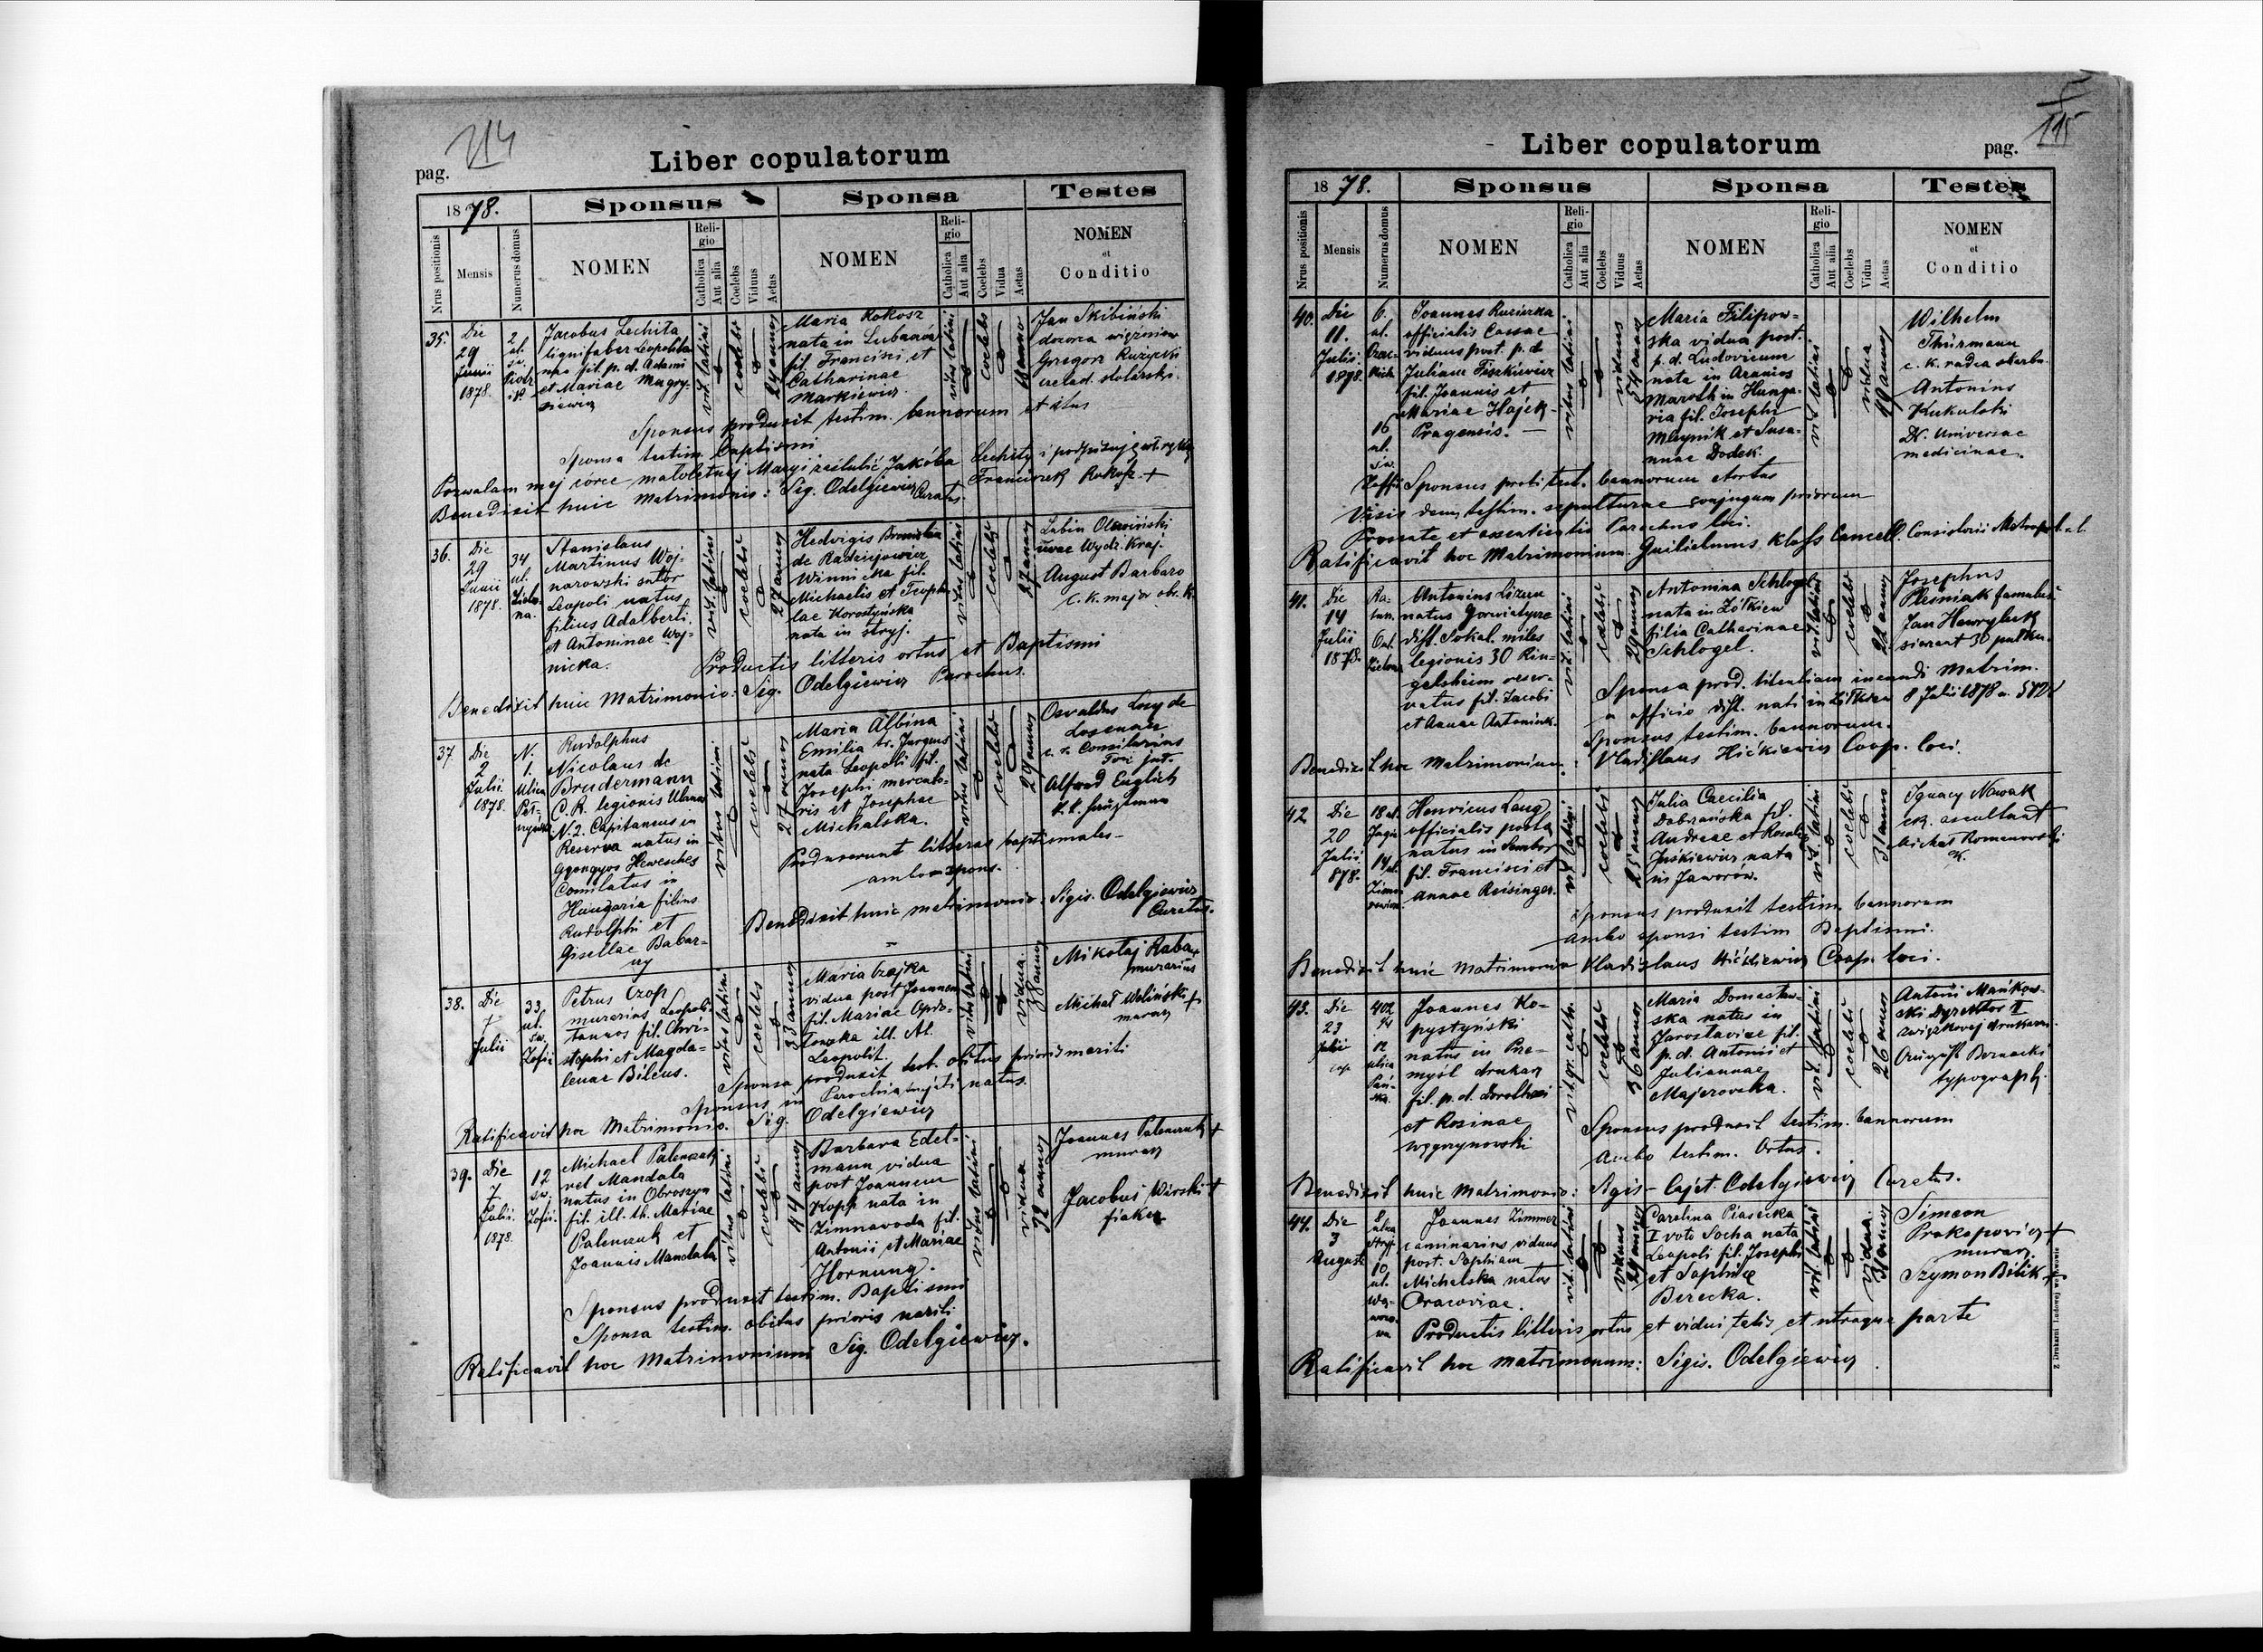 214
pag.
Liber copulatorum
1878.
Sponsus
Sponsa
Testes
Nrus positionis
Mensis
Numerus domus
NOMEN
Religio
Catholica
Aut alia
Coelebs
Viduus
Aetas
NOMEN
Religio
Catholica
Aut alia
Coelebs
Vidua
Aetas
NOMEN
et
Conditio
35.
Die
29
Junii
1878.
2
ul.
św.
Piotr
Jacobus Lechita
lignifaber Leopolita
nus fil. p. d. Adami
et Mariae Magry-
siewicz
ritus latini
coelebs
24 annos
Maria Kokosz
nata in
fil. Francisci et
Catharinae
Markiewicz
ritus latini
coelebs
18 anno
Jan Skibiński
dozorca więzniow
Grzegorz Ruzycki
czelad. stolarski.
Sponsus produxit testim. bannorum et ortus
Sponsa testim. baptismi
Pozwalam mej córce małoletniej Maryi zaślubić Jakóba Lechitę i podpisuję
Franciszek Kokosz +
Benedixit huic Matrimonio: Sig. Odelgiewicz Curatus
36.
Die
29
Junii
1878.
34
ul.
Zielo-
na.
Stanislaus
Martinus Woj-
narowski sutor
Leopoli natus
filius Adalberti
et Antoninae Woj-
nicka.
rit. latini
coelebs
27 annos
Hedvigis
de Radziejowicz
Winnicka fil.
Michaelis et Teophi-
lae Korostyńska
nata in Stryj.
ritus latini
coelebs
27 annos
Wydz. Kraj.
August Barbaro
c. k. major
Productis litteris ortus et Baptismi
Benedixit huic Matrimonio: Sig. Odelgiewicz Parochus.
37.
Die
2
Julii
1878.
N.
1.
Ulica
Rudolphus
Nicolaus de
Brudermann
C. R. legionis
N. 2. Capitaneus in
Reserva natus in
Gyongyos Heweseches
Comitatus in
Hungaria filius
Rudolphi et
Gisellae Babar-
czy
ritus latini
coelebs
27 annos
Maria Albina
Emilia tr. Jurgens
nata Leopoli fil.
Josephi mercato-
ris et Josephae
Michalska.
ritus latini
coelebs
24 annos
Osvaldus Losy de
Losenau
c. r. Consiliarius
Alfred Englich
k. k. Hauptmann
Produxerunt litteras baptismales
ambo spons.
Benedixit huic matrimonio: Sigis. Odelgiewicz
Curatus.
38.
Die
7
Julii
33
ul.
św.
Zofii
Petrus Czop
murarius Leopoli-
tanus fil. Chri-
stophi et Magda-
lenae Bileus.
ritus latini
coelebs
33 annos
Maria Czajka
vidua post Joannem
fil. Mariae
ill. th.
Leopolit.
ritus latini
vidua
38 annos
Mikołaj Raba +
murarius
Michał Woliński +
murarz
Sponsa produxit test. obitus prioris mariti
Sponsus in Parochia natus.
Ratificavit hoc Matrimonio. Sig. Odelgiewicz
39.
Die
7
Julii.
1878.
12
św.
Zofii.
Michael Palenczuk
vel Mandala
natus in Obroszyn
fil. ill. th. Mariae
Palenczuk et
Joannis Mandala
ritus latini
coelebs
44 annos
Barbara Edel-
mann vidua
post Joannem
Kopp nata in
Zimnawoda fil.
Antonii et Mariae
Hornung.
ritus latini
vidua
42 annos
Joannes Palenczuk +
murarz
Jacobus Wirski +
fiaker
Sponsus produxit testim. Baptismi
Sponsa testim. obitus prioris mariti
Ratificavit hoc Matrimonium Sig. Odelgiewicz.
Liber copulatorum
pag.
115
1878.
Sponsus
Sponsa
Testes
Nrus positionis
Mensis
Numerus domus
NOMEN
Religio
Catholica
Aut alia
Coelebs
Viduus
Aetas
NOMEN
Religio
Catholica
Aut alia
Coelebs
Vidua
Aetas
NOMEN
et
Conditio
40.
Die
11.
Julii
1878.
6.
ul.
16
ul.
św.
Zoffii
Joannes Ruzicka
officialis Cassae
viduus post. p. d.
Juliam Fiszkiewicz
fil. Joannis et
Mariae Hajek
Pragensis.
ritus latini
viduus
54 annos
Maria Filipow-
ska vidua post.
p. d. Ludovicum
nata in Aranios
Maroth in Hunga-
ria fil. Josephi
Mlynik et Susa-
nnae Dodek.
rit. latini
vidua
49 annos
Wilhelm
Thürmann
c. k. radca skarbu
Antonius
Kukulski
Dr. Universae
medicinae.
Sponsus prod. test. bannorum et ortus
Visis dein testim. sepulturae conjugum priorum
Praesente et assentientia Parocho loci.
Ratificavit hoc Matrimonium. Guilielmus Klofs Cancell. Consistorii Metropol. r. l.
41.
Die
14
Julii
1878.
Antonius Lizun
natus
distr. Sokal. miles
legionis 30 Rin-
gelsheim reser-
vatus fil. Jacobi
et Annae Antoniuk.
rit. latini
coelebs
29 annos
Antonina Schlogel
nata in Żółkiew
filia Catharinae
Schlogel.
rit. latini
coelebs
22 annos
Josephus
Plesniak famulus
Jan Hawryluk
sierzant 30 pułku.
Sponsa prod. licentiam ineundi matrim.
a officio distr. nati in Żółkiew 8 Julii 1878
Sponsus testim. bannorum.
Benedixit hoc Matrimonium: Vladislaus Hićkiewicz Coop. loci.
42
Die
20
Julii
878.
18 ul.
14 ul.
Henricus Laug
officialis posta
natus in Sambor
fil. Francisci et
Annae Reisinger.
rit. latini
coelebs
25 annos
Julia Caecilia
Dobrańska fil.
Andreae et Rosaliae
Juskiewicz nata
in Jaworów.
rit. latini
coelebs
31 anno
Ignacy Nowak
ck. ascultant
Michał Romanowski
Sponsus produxit testim. bannorum
Ambo sponsi testim Baptismi.
Benedixit huic Matrimonio Vladislaus Hićkiewicz Coop. loci.
43.
Die
23
Julii
402
12
ulica
Pań-
ska.
Joannes Ko-
pystyński
natus in Prze-
myśl drukarz
fil. p. d. Dorothei
et Rosinae
Węgrzynowski
rit. gr. cath.
coelebs
36 annos
Maria Domastaw-
ska natus in
Jarosłavice fil.
p. d. Antonii et
Juliannae
Majerowska.
rit. latini
coelebs
26 annos
Antoni Mańkow-
ski Dyrektor I
związkowej drukarni.
August Bernacki
typograph.
Sponsus produxit testim. bannorum
Ambo testim. Ortus.
Benedixit huic Matrimonio: Sigis- Cajet. Odelgiewicz Curatus.
44.
Die
3
Augusti
10
ul.
Joannes Zimmer
caminarius viduus
post. Sophiam
Michalska natus
Cracoviae.
rit. latini
viduus
29 annos
Carolina Piasecka
I voto Socha nata
Leopoli fil. Josephi
et Sophiae
Berecka.
rit. latini
vidua.
31 annos
Simeon
Prokopovicz +
murarz.
Szymon Bilik +
Productis litteris ortus et viduitatis et utraque parte
Ratificavit hoc matrimonium: Sigis. Odelgiewicz
Z Drukarni Ludowej we Lwowie